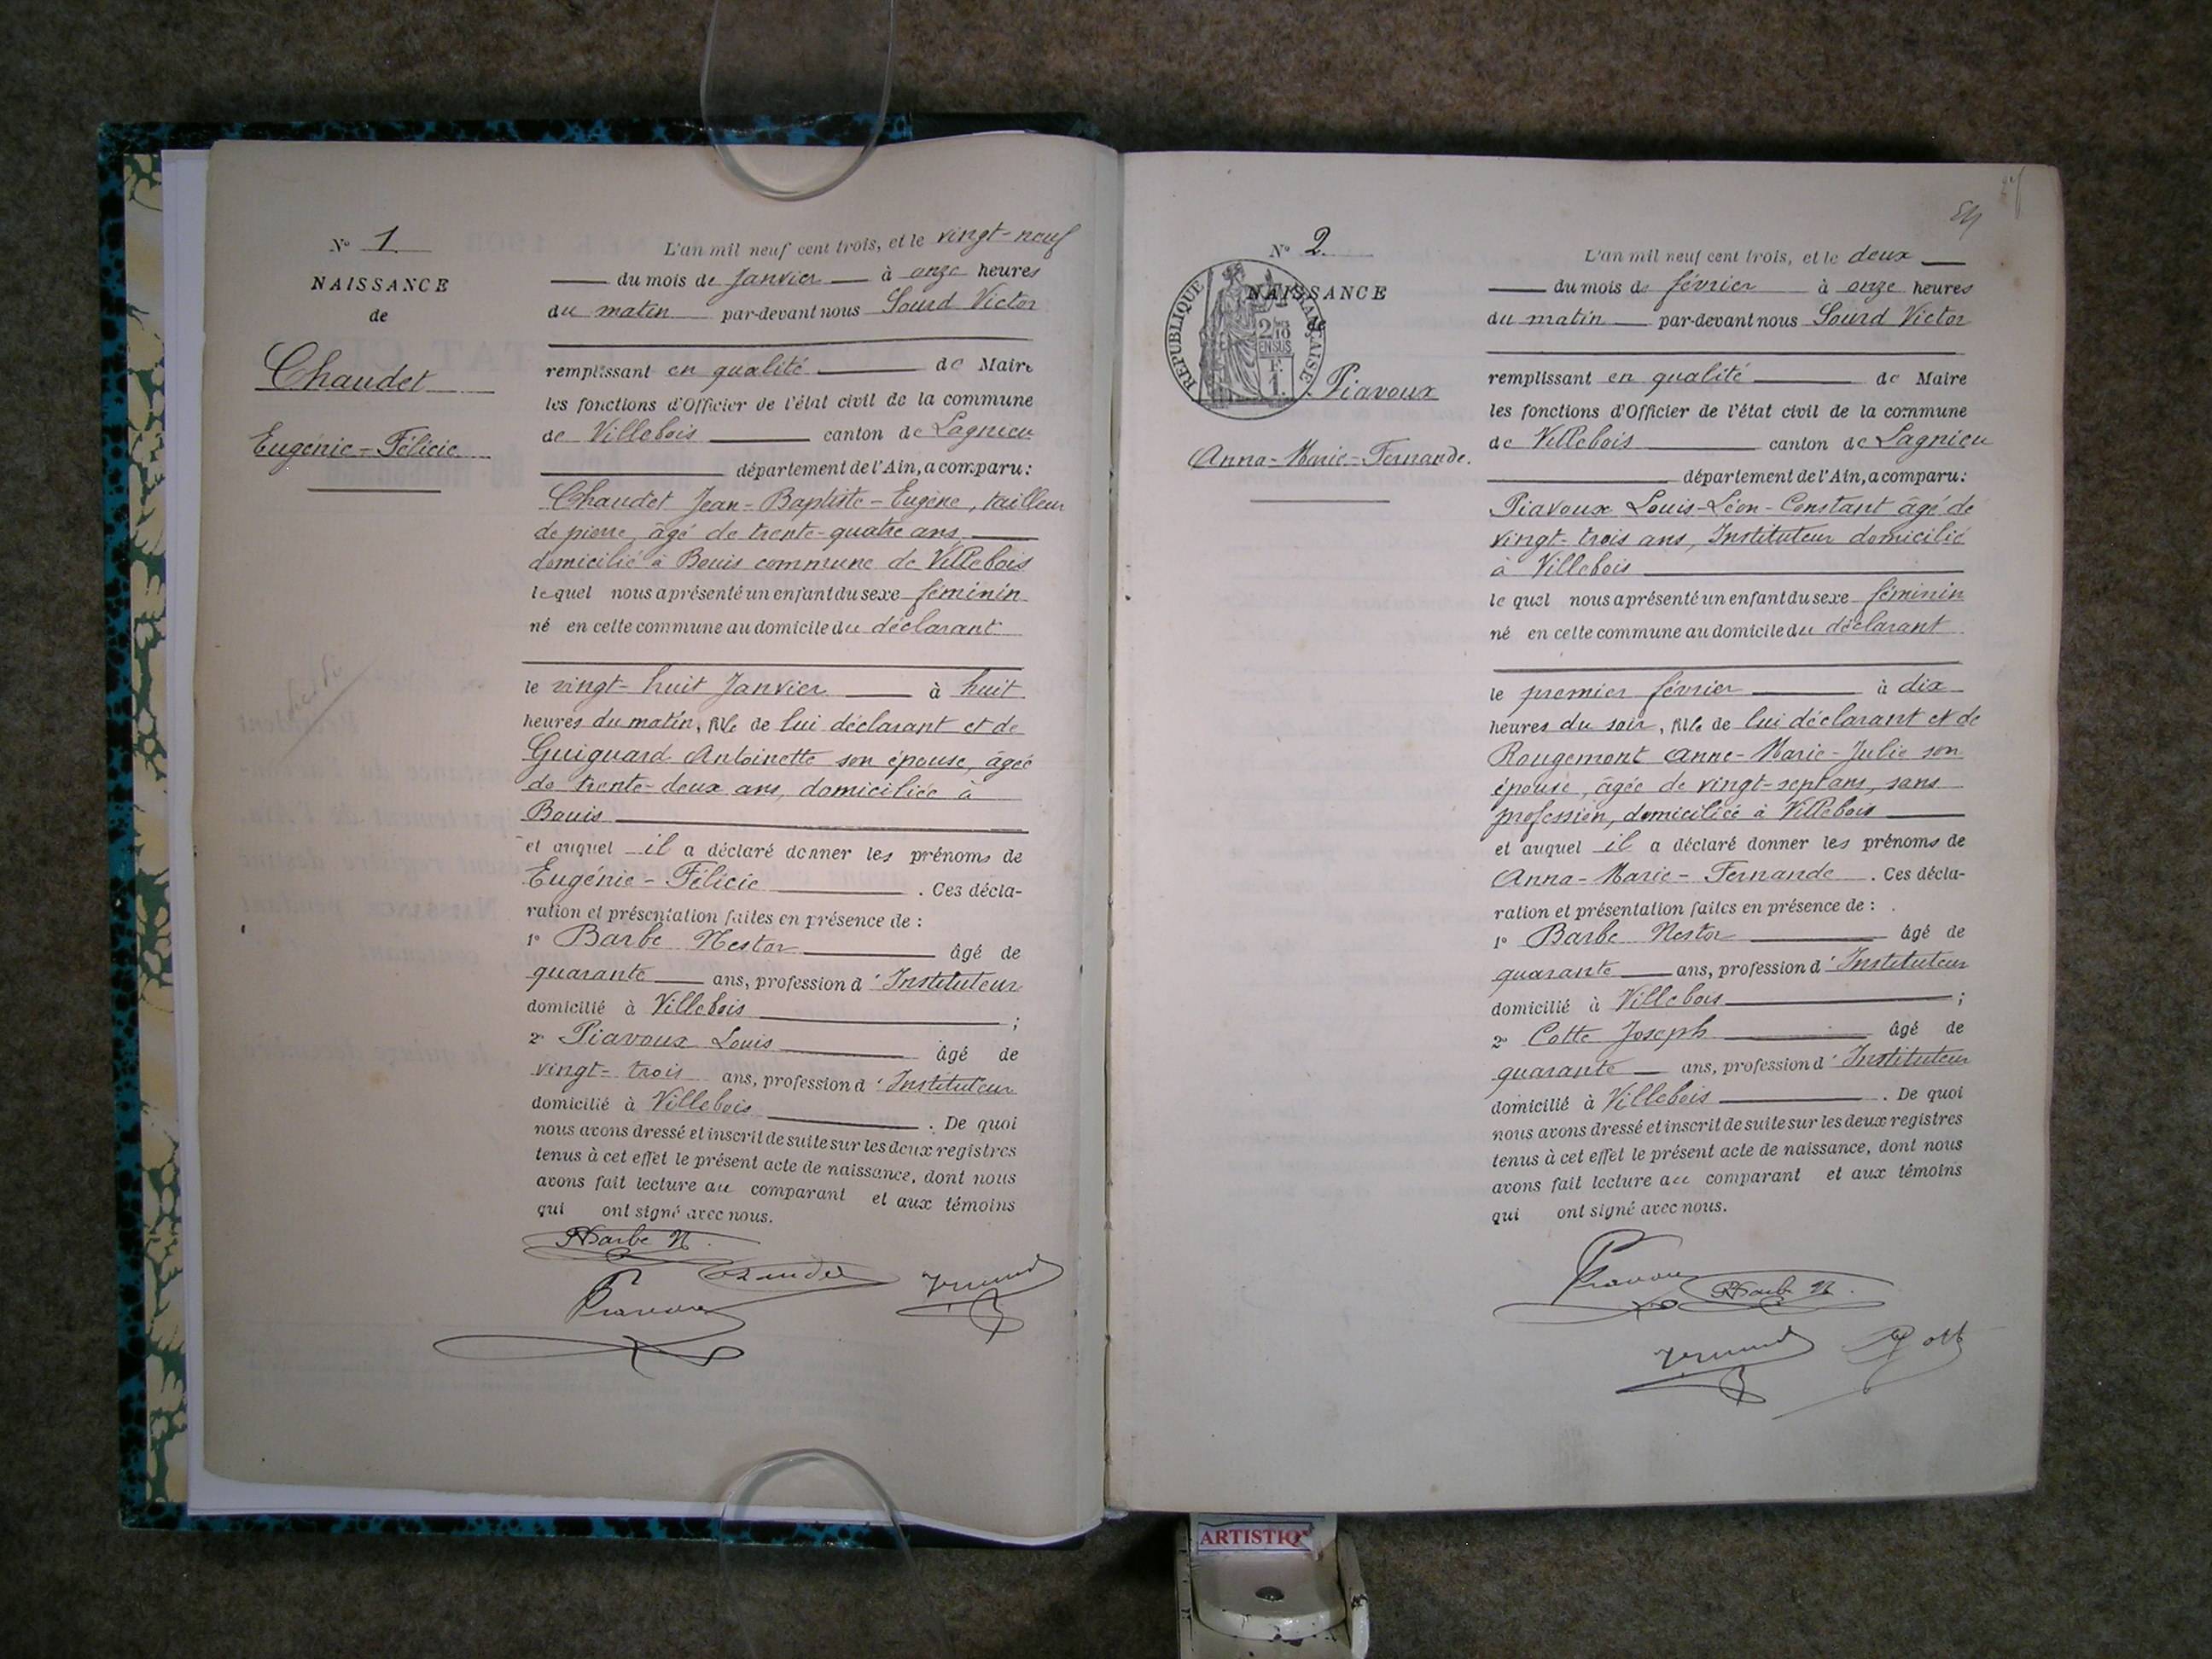 N° 1
NAISSANCE
de
Chaudet
Eugénie-Félicie
L'an mil neuf cent trois, et le vingt-neuf
du mois de Janvier à onze heures
du matin par-devant nous Sourd Victor
remplissant en qualité de Maire
les fonctions d'Officier de l'état civil de la commune
de Villebois canton de Lagnieu
département de l'Ain, a comparu:
Chaudet Jean-Baptiste-Eugène, tailleur
de pierre, âgé de trente-quatre ans
domicilié à Bouis commune de Villebois
lequel nous a présenté un enfant du sexe féminin
né en cette commune au domicile du déclarant
le vingt-huit Janvier à huit
heures du matin, fille de lui déclarant et de
Guiguard Antoinette son épouse, âgée
de trente-deux ans, domiciliée à
Bouis
et auquel il a déclaré donner les prénoms de
Eugénie-Félicie. Ces décla-
ration et présentation faites en présence de :
1° Barbe Nestor âgé de
quarante ans, profession d'Instituteur
domicilié à Villebois ;
2° Piavoux Louis âgé de
vingt-trois ans, profession d'Instituteur
domicilié à Villebois. De quoi
nous avons dressé et inscrit de suite sur les deux registres
tenus à cet effet le présent acte de naissance, dont nous
avons fait lecture au comparant et aux témoins
qui ont signé avec nous.
Barbe N.
Chaudet
Piavoux
N° 2
RÉPUBLIQUE FRANÇAISE
2/10 EN SUS
F. 1.
NAISSANCE
de
Piavoux
Anna-Marie-Fernande.
L'an mil neuf cent trois, et le deux
du mois de février à onze heures
du matin par-devant nous Sourd Victor
remplissant en qualité de Maire
les fonctions d'Officier de l'état civil de la commune
de Villebois canton de Lagnieu
département de l'Ain, a comparu:
Piavoux Louis-Léon-Constant âgé de
vingt-trois ans, Instituteur domicilié
à Villebois
lequel nous a présenté un enfant du sexe féminin
né en cette commune au domicile du déclarant
le premier février à dix
heures du soir, fille de lui déclarant et de
Rougemont Anne-Marie-Julie son
épouse, âgée de vingt-sept ans, sans
profession, domiciliée à Villebois
et auquel il a déclaré donner les prénoms de
Anna-Marie-Fernande. Ces décla-
ration et présentation faites en présence de :
1° Barbe Nestor âgé de
quarante ans, profession d'Instituteur
domicilié à Villebois ;
2° Cotte Joseph âgé de
quarante ans, profession d'Instituteur
domicilié à Villebois. De quoi
nous avons dressé et inscrit de suite sur les deux registres
tenus à cet effet le présent acte de naissance, dont nous
avons fait lecture au comparant et aux témoins
qui ont signé avec nous.
Piavoux
Barbe N.
ARTISTIQ